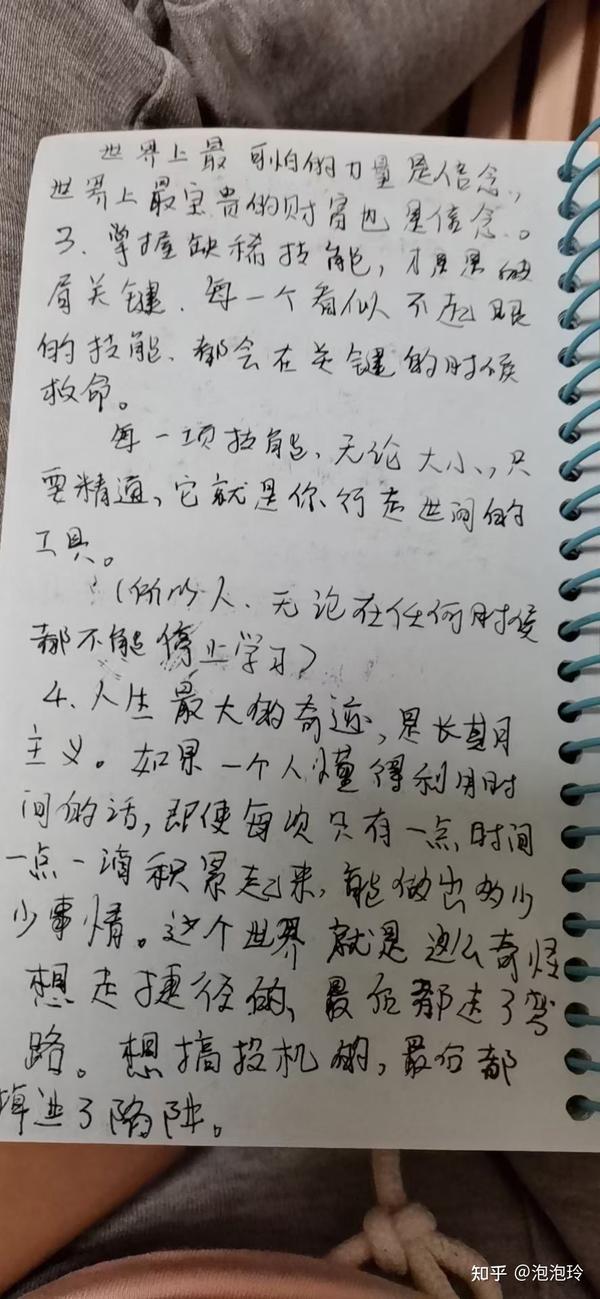 世界上最可怕的力量是信念，
世界上最宝贵的财富也是信念。
3、掌握缺稀技能，才是黑的
眉关键、每一个看似不起眼
的技能、都会在关键的时候
救命。
每一项技能、无论大小，只
要精通，它就是你行走世间的
工具。
（所以人、无论在任何时候
都不能停止学习）
4、人生最大的奇迹，是长期
主义。如果一个人懂得利用时
间的话，即使每次只有一点时间
一点一滴积累起来，能做出多少
少事情。这个世界就是这么奇怪
想走捷径的、最后都走了弯
路。想搞投机的，最后都
掉进了陷阱。
知乎 @泡泡玲